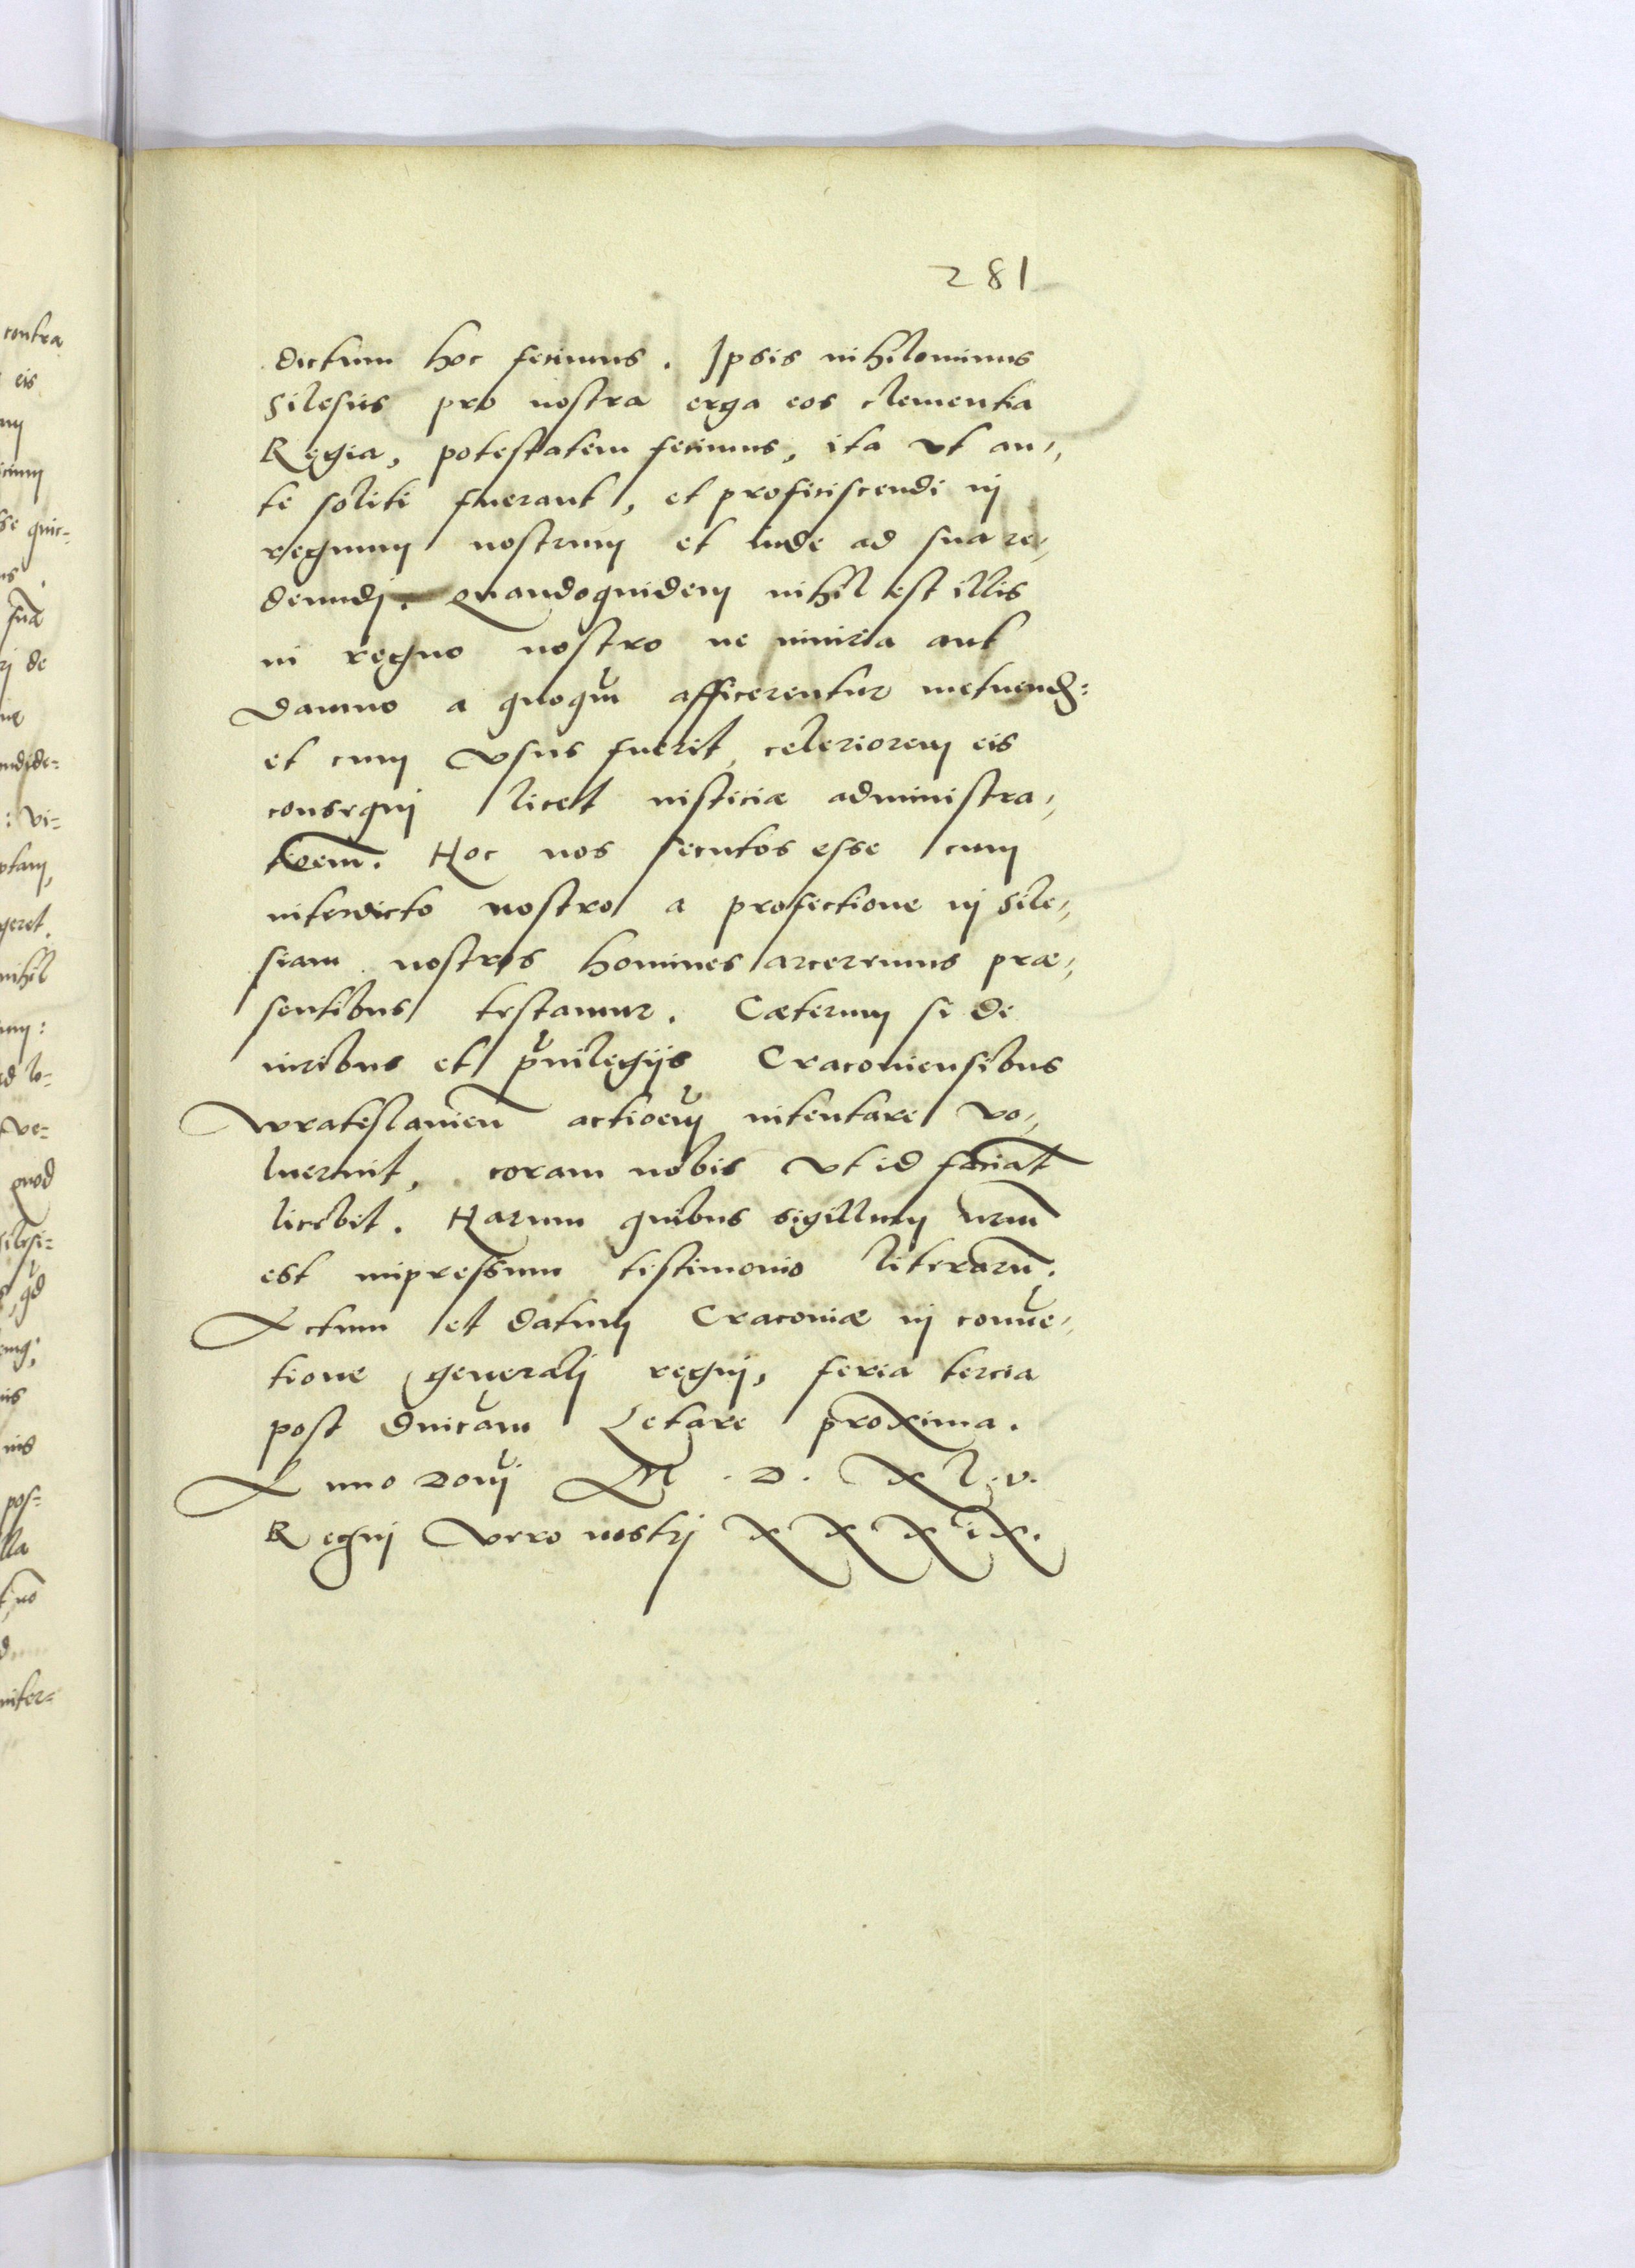 281
dictum hoc fecimus. Ipsis nihilominus
Silesiis pro nostra erga eos clementia
Regia, potestatem fecimus, ita vt an-
te soliti fuerant, et proficiscendi in
regnum nostrum et inde ad sua re-
deundi. Quandoquidem nihil est illis
in regno nostro ne iniuria aut
damno a quoqua afficerentur metuend:
et cum vsus fuerit, celeriorem eis
consequi licet iusticiæ administra-
tioem. Hoc nos secutos esse cum
interdicto nostro a profectione in Sile-
siam nostros homines arceremus præ-
sentibus testamur. Cæterum si de
iuribus et priuilegijs Cracouiensibus
Wratislauien actioem intentare vo-
luerint, coram nobis vt id faciāt
licebit. Harum quibus sigillum nrm̄
est impressum testimonio literarū.
Actum et datum Cracouiæ in conue-
tione generali regni, feria tercia
post dnicam Letare proxima.
Anno Domi M. D. XLv.
Regni vero nostri XXXiX.
contra
eis
quic-
sua
de
vi-
geret.
nihil
ve-
quod
pos-
lla
no
inter-